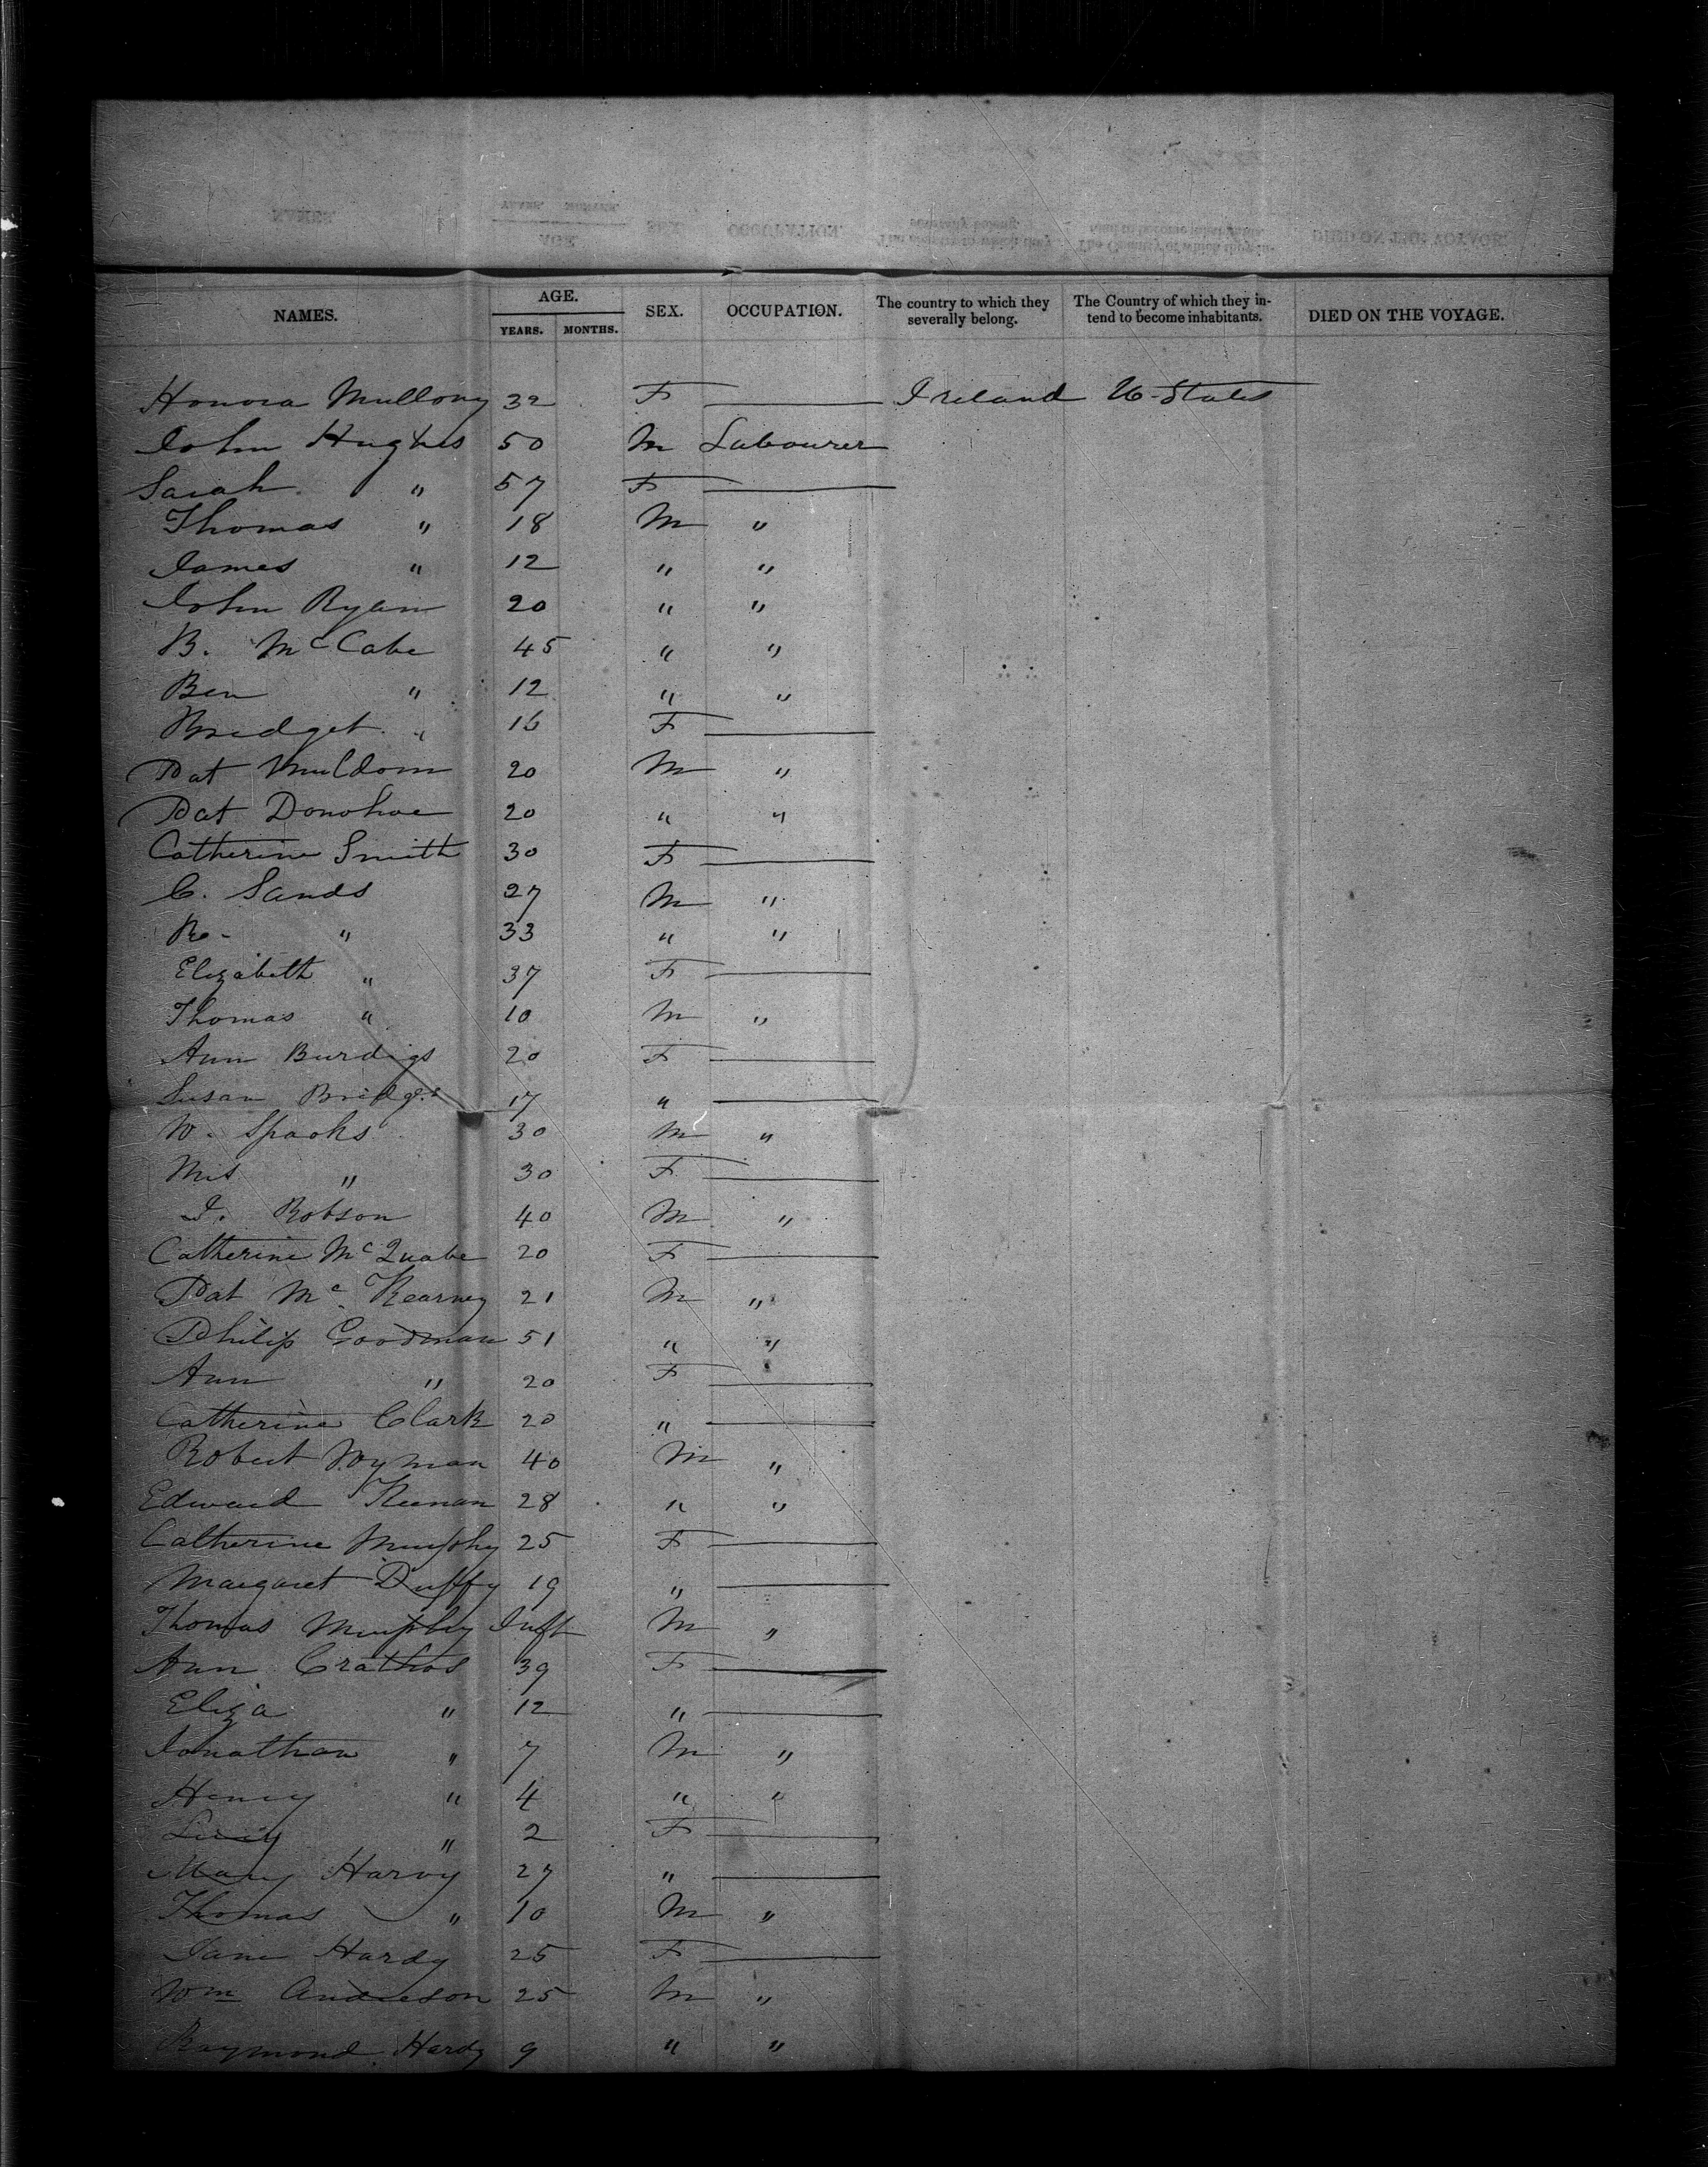 NAMES. AGE. YEARS. MONTHS. SEX. OCCUPATION. The country to which they severally belong. The Country of which they intend to become inhabitants. DIED ON THE VOYAGE.
Honora Mullony 32 F — Ireland U. States
John Hughes 50 M Labourer
Sarah " 57 F —
Thomas " 18 M "
James " 12 " "
John Ryan 20 " "
B. McCabe 45 " "
Ben " 12 " "
Bridget " 16 F —
Pat Muldom 20 M "
Pat Donohoe 20 " "
Catherine Smith 30 F —
C. Sands 27 M "
Ro- " 33 " "
Elizabeth " 37 F —
Thomas " 10 M "
Ann Burdigs 20 F —
Susan Bridgs 17 " —
W. Spooks 30 M "
Mrs " 30 F —
J. Robson 40 M "
Catherine McQuabe 20 F —
Pat Mc Kearney 21 M "
Philip Goodman 51 " "
Ann " 20 F —
Catherine Clark 20 " —
Robert Wyman 40 M "
Edward Keenan 28 " "
Catherine Murphy 25 F —
Margaret Duffy 19 " —
Thomas Murphy Inft M "
Ann Crathos 39 F —
Eliza " 12 " —
Jonathan " 7 M "
Henry " 4 " "
Lucy " 2 F —
Mary Harvy 27 " —
Thomas " 10 M "
Jane Hardy 25 F —
Wm Andreson 25 M "
Raymond Hardy 9 " "